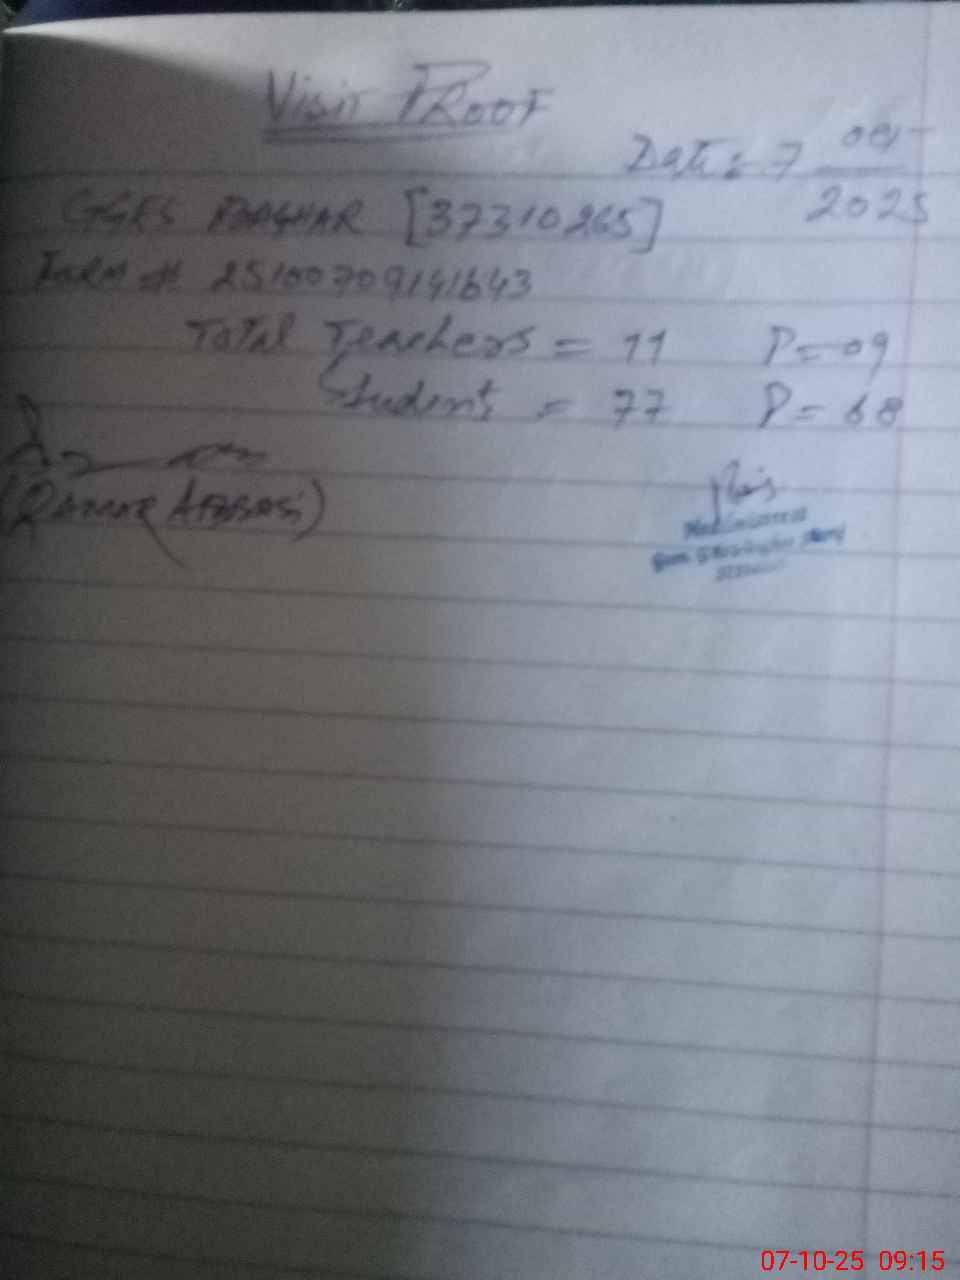 Visit PROOF
Date: 7 Oct
2025
GGES [37310265]
FORM # 25100709141643
Total Teachers = 11 P = 09
Student = 77 P = 68
Abbasi)
Headmistress
07-10-25 09:15